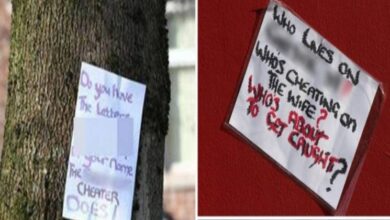 Do you Have
The Letters
your Name
The
CHEATER
DOES!
WHO LIVES ON
WHO'S CHEATING ON
THE WIFE?
WHO'S ABOUT
TO GET CAUGHT?